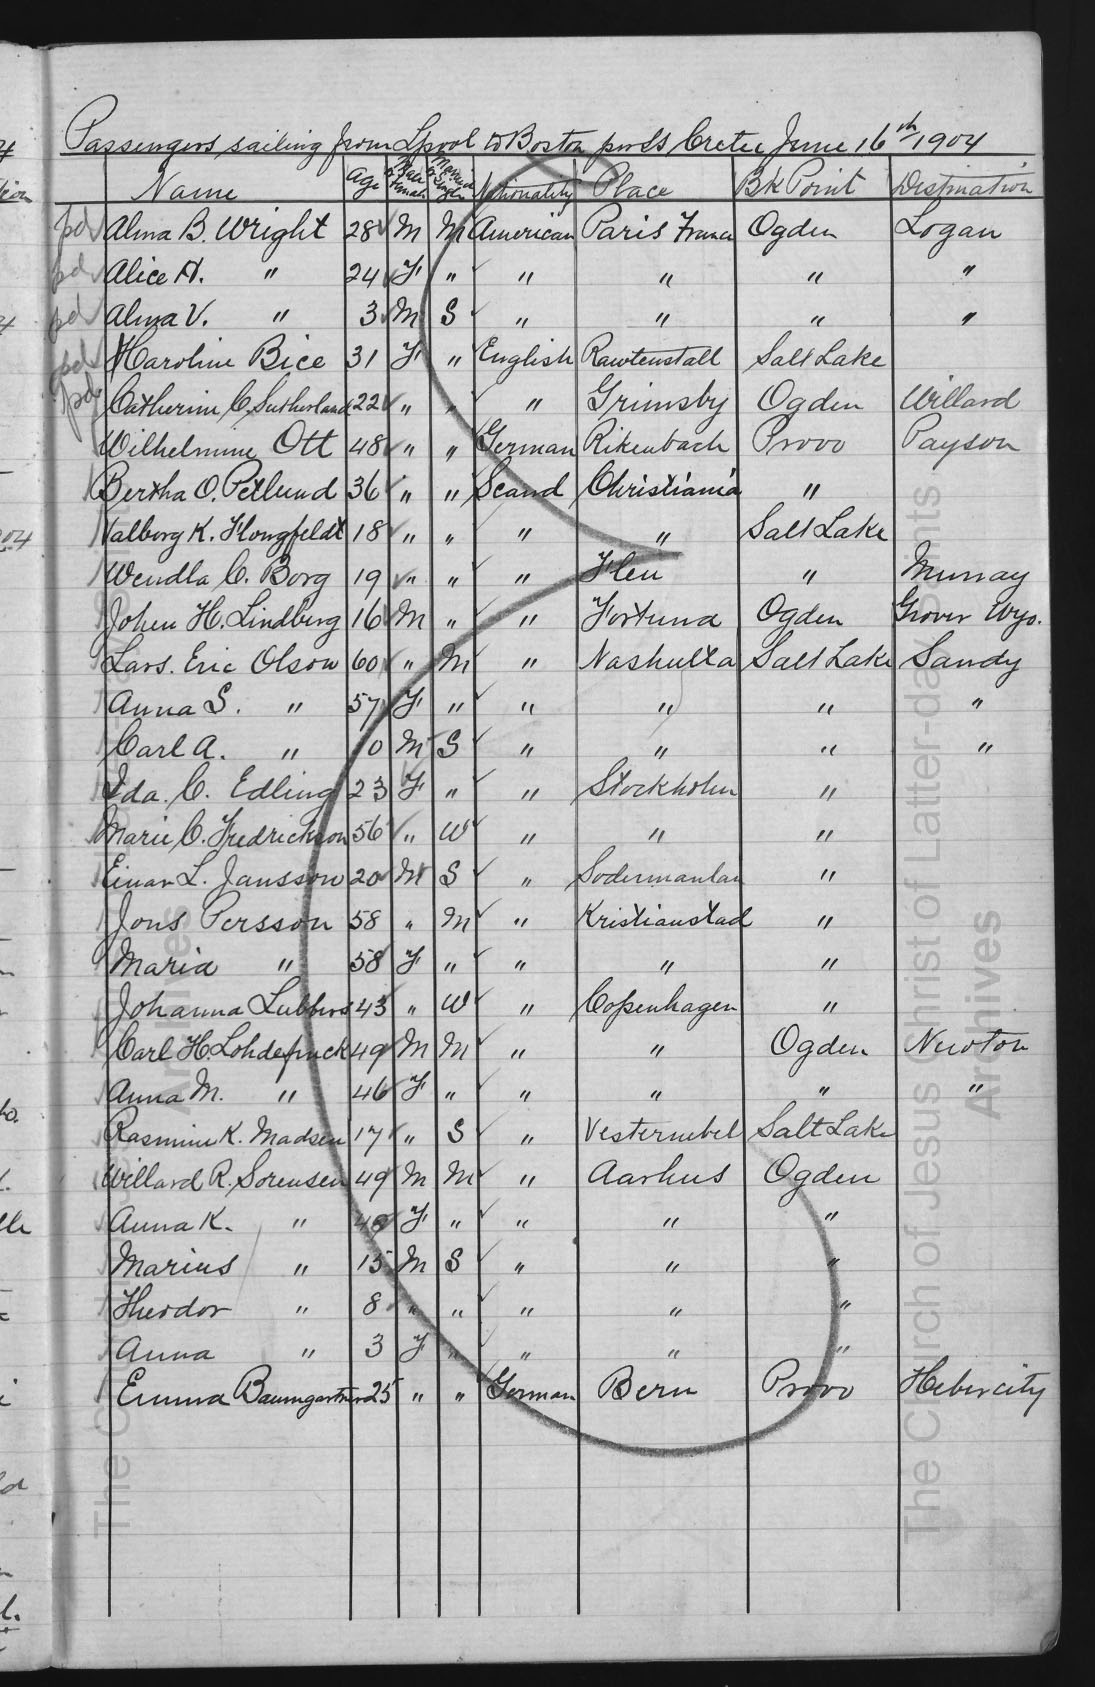 Passengers sailing from Lpool to Boston per SS Cretic June 16th 1904
Name Age Male or Female Married or Single Nationality Place Bk Point Destination
pd Alma B. Wright 28 M M American Paris France Ogden Logan
pd Alice A. " 24 F " " " " "
pd Alma V. " 3 M S " " " "
pd Karoline Bice 31 F " English Rawtenstall Salt Lake
pd Catherine C. Sutherland 22 " " " Grimsby Ogden Willard
Wilhelmine Ott 48 " " German Rikenbach Provo Payson
Bertha O. Petlund 36 " " Scand Christiania "
Valborg K. Flongfeldt 18 " " " " Salt Lake
Wendla C. Borg 19 " " " Flen " Murray
Johen H. Lindberg 16 M " " Fortuna Ogden Grover Wyo.
Lars. Eric Olson 60 " M " Nashulta Salt Lake Sandy
Anna S. " 57 F " " " " "
Carl A. " 10 M S " " " "
Ida. C. Edling 23 F " " Stockholm "
Marie C. Fredrickson 56 " W " " "
Einar L. Jansson 20 M S " Sodermanlan "
Jons Persson 58 " M " Kristianstad "
Maria " 58 F " " " "
Johanna Lubbers 43 " W " Copenhagen "
Carl H. Lohdefinck 49 M M " " Ogden Newton
Anna M. " 46 F " " " " "
Rasmine K. Madsen 17 " S " Vesternebel Salt Lake
Willard R. Sorensen 49 M M " Aarhus Ogden
Anna K. " F " " " "
Marius " 15 M S " " "
Theodor " 8 " " " " "
Anna " 3 F " " " "
Emma Baumgartner 25 " " German Bern Provo Hebercity
The Church of Jesus Christ of Latter-day Saints
Archives